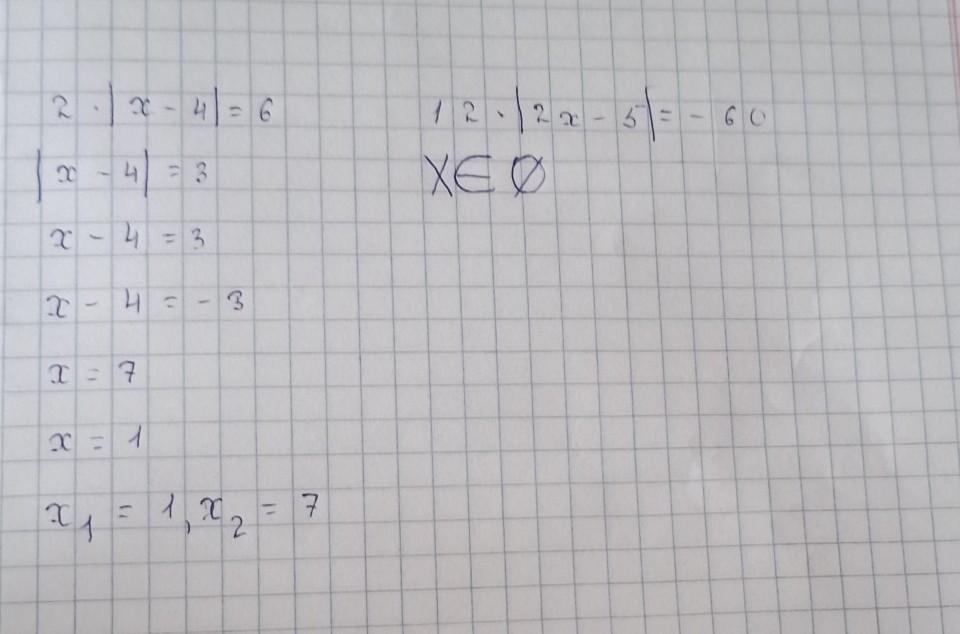 2 · |x - 4| = 6
|x - 4| = 3
x - 4 = 3
x - 4 = - 3
x = 7
x = 1
x₁ = 1, x₂ = 7
12 · |2x - 5| = - 60
X ∈ ∅